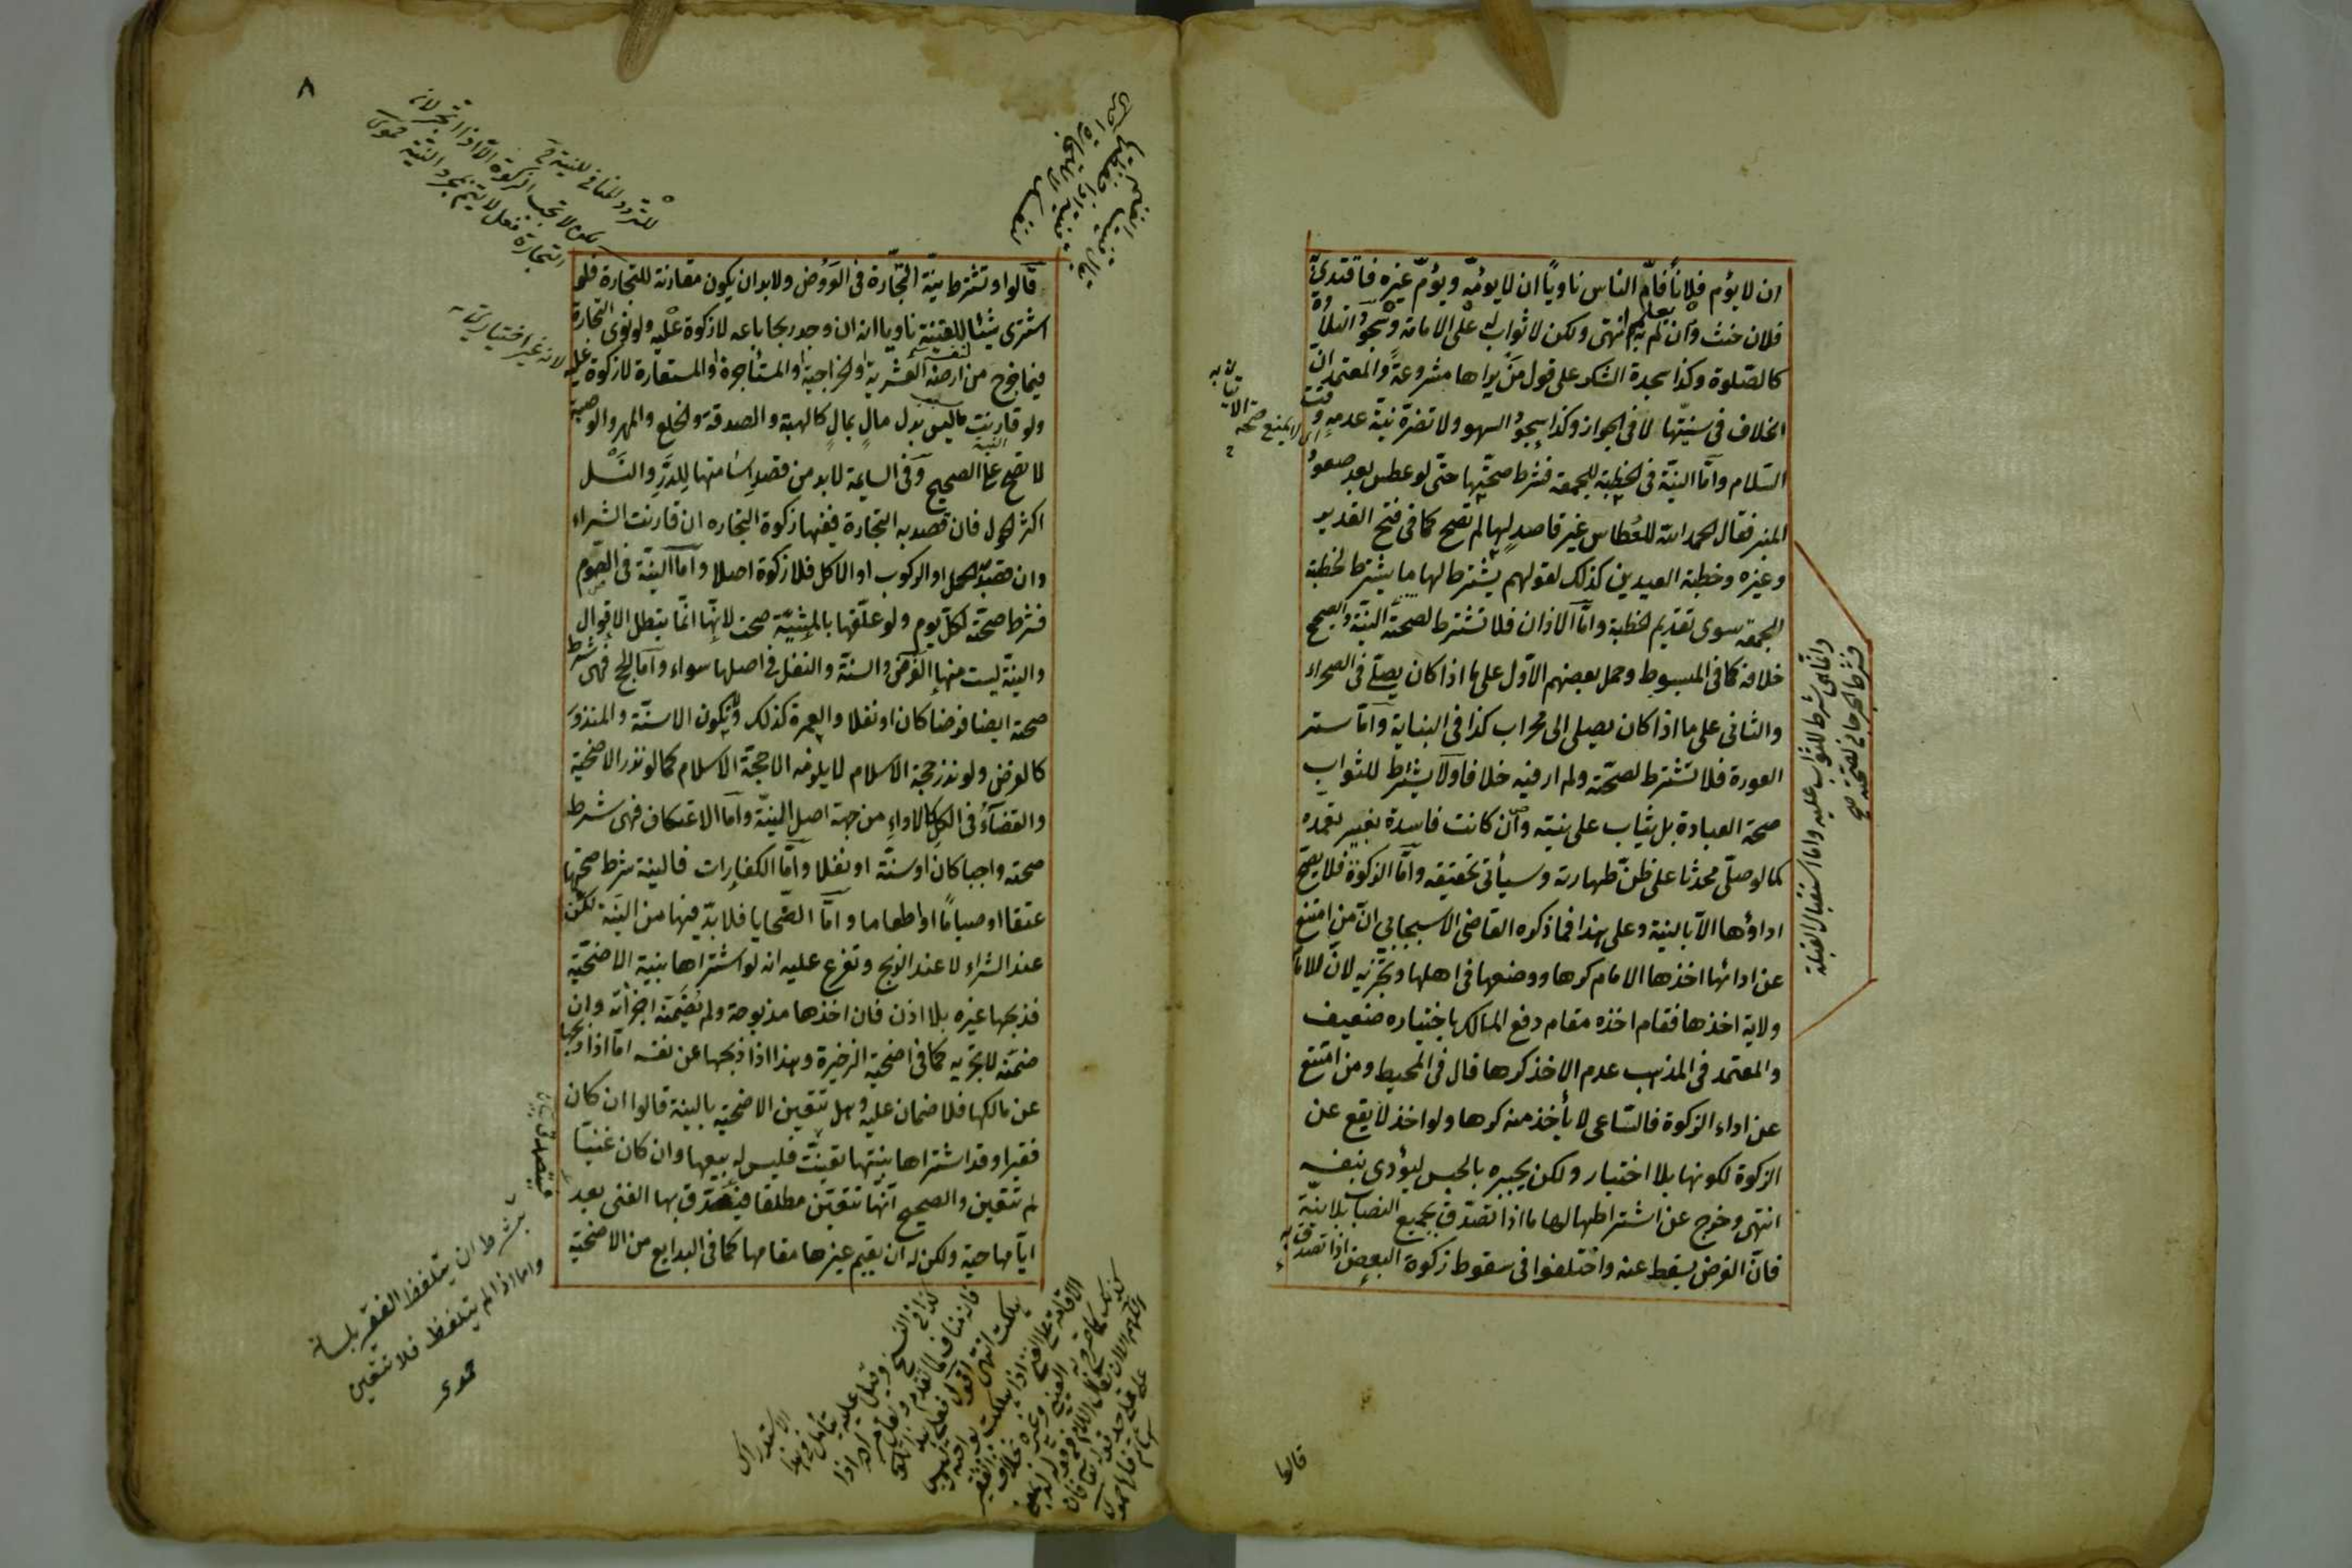 ان لا يؤم فلانا فامّ الناس ناويا ان لا يؤمّه ويؤمّ غيره فاقتدى به
فلان حنث وان لم يعلم به انتهى ولكن لا ثواب له على الامامة وسجود التلاوة
كالصّلوة وكذا سجدة الشكر على قول من يراها مشروعة والمعتمد ان
الخلاف فى سنيّتها لا فى الجواز وكذا سجود السهو ولا تضرّه نيّة عدمه وقت
السّلام وامّا النيّة فى الخطبة للجمعة فشرط صحّتها حتّى لو عطس بعد صعود
المنبر فقال الحمد لله للعُطاس غير قاصد لها لم تصح كما فى فتح القدير
وغيره وخطبة العيدين كذلك لقولهم يشترط لها ما يشترط لخطبة
الجمعة سوى تقديم الخطبة وامّا الاذان فلا تشترط لصحته النيّة والصحيح
خلافه كما فى المبسوط وحمل بعضهم الاوّل على ما اذا كان يصلّى فى الصحراء
والثانى على ما اذا كان يصلى الى محراب كذا فى البناية وامّا ستر
العورة فلا تشترط لصحّته ولم ار فيه خلافا ولا يشترط للثواب
صحة العبادة بل يثاب على نيته وان كانت فاسدة بغير تعمده
كما لو صلّى محدثا على ظنّ طهارته وسيأتى تحقيقه وامّا الزكوة فلا يصح
اداؤها الا بالنية وعلى هذا فما ذكره القاضى الاسبيجابى انّ من امتنع
عن ادائها اخذها الامام كرها ووضعها فى اهلها وتجزيه لانّ للامام
ولاية اخذها فقام اخذه مقام دفع المالك باختياره ضعيف
والمعتمد فى المذهب عدم الاخذ كرها قال فى المحيط ومن امتنع
عن اداء الزكوة فالسّاعى لا يأخذ منه كرها ولو اخذ لا يقع عن
الزكوة لكونها بلا اختيار ولكن يجبره بالحبس ليؤدى بنفسه
انتهى وخرج عن اشتراطها لها ما اذا تصدّق بجميع النصاب بلا نيّة
فانّ الفرض يسقط عنه واختلفوا فى سقوط زكوة البعض اذا تصدق به
وانما هى شرط للثواب عليه واما استقبال القبلة
فشرط الجرجانى لصحته صح
قالوا
٨
قالوا وتشترط نيّة التجّارة فى العروض ولا بد ان يكون مقارنة للتجارة فلو
اشترى شيئا للقنية ناويا انه ان وجد ربحا باعه لا زكوة عليه ولو نوى التجارة
فيما خرج من ارضه العشرية او الخراجية او المستأجرة او المستعارة لا زكوة عليه
ولو قارنت ما ليس بدل مالٍ بمالٍ كالهبة والصدقة والخلع والمهر والوصية
لا تصح على الصحيح وفى السايمة لا بد من قصد اسامتها للدرّ والنسل
اكثر الحول فان قصد به التجارة ففيها زكوة التجاره ان قارنت الشراء
وان قصد به الحمل او الركوب او الاكل فلا زكوة اصلا وامّا النيّة فى الصوم
فشرط صحته لكلّ يوم ولو علّقها بالمشيّة صحت لانها انّما يتبطل الاقوال
والنيّة ليست منها والفرض والسنّة والنفل فى اصلها سواء وامّا الحج فهى شرط
صحته ايضا فرضا كان او نفلا والعمرة كذلك ولا تكون الا سنّة والمنذور
كالفرض ولو نذر حجة الاسلام لا يلزمه الا حجة الاسلام كما لو نذر الاضحية
والقضآء فى الكل كالاداء من جهة اصل النيّة وامّا الاعتكاف فهى شرط
صحته واجبا كان او سنّة او نفلا وامّا الكفارات فالنية شرط صحتها
عتقا او صياماً او اطعاما وامّا الضحايا فلا بدّ فيها من النيّة لكن
عند الشراء لا عند الذبح وتفرع عليه انه لو اشتراها بنية الاضحيّة
فذبحها غيره بلا اذن فان اخذها مذبوحة ولم يضمّنه اجزأته وان
ضمّنه لا تجزيه كما فى اضحية الذخيرة وهذا اذا ذبحها عن نفسه امّا اذا ذبحها
عن مالكها فلا ضمان عليه وهل تتعين الاضحية بالنية قالوا ان كان
فقيرا وقد اشتراها بنيّتها تعينت فليس له بيعها وان كان غنيّا
لم تتعين والصحيح انّها تتعيّن مطلقا فيتصدّق بها الغنى بعد
ايّامها حية ولكن له ان يقيم غيرها مقامها كما فى البدايع من الاضحيّة
بشرط ان يتلفظ الفقير بلسانه
واما اذا لم يتلفظ فلا تتعين
حموى